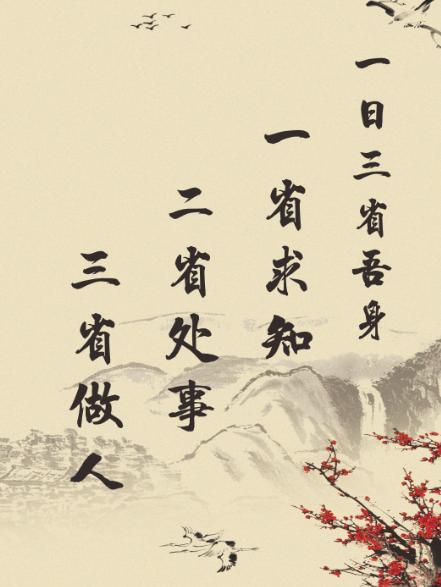 一日三省吾身
一省求知
二省处事
三省做人